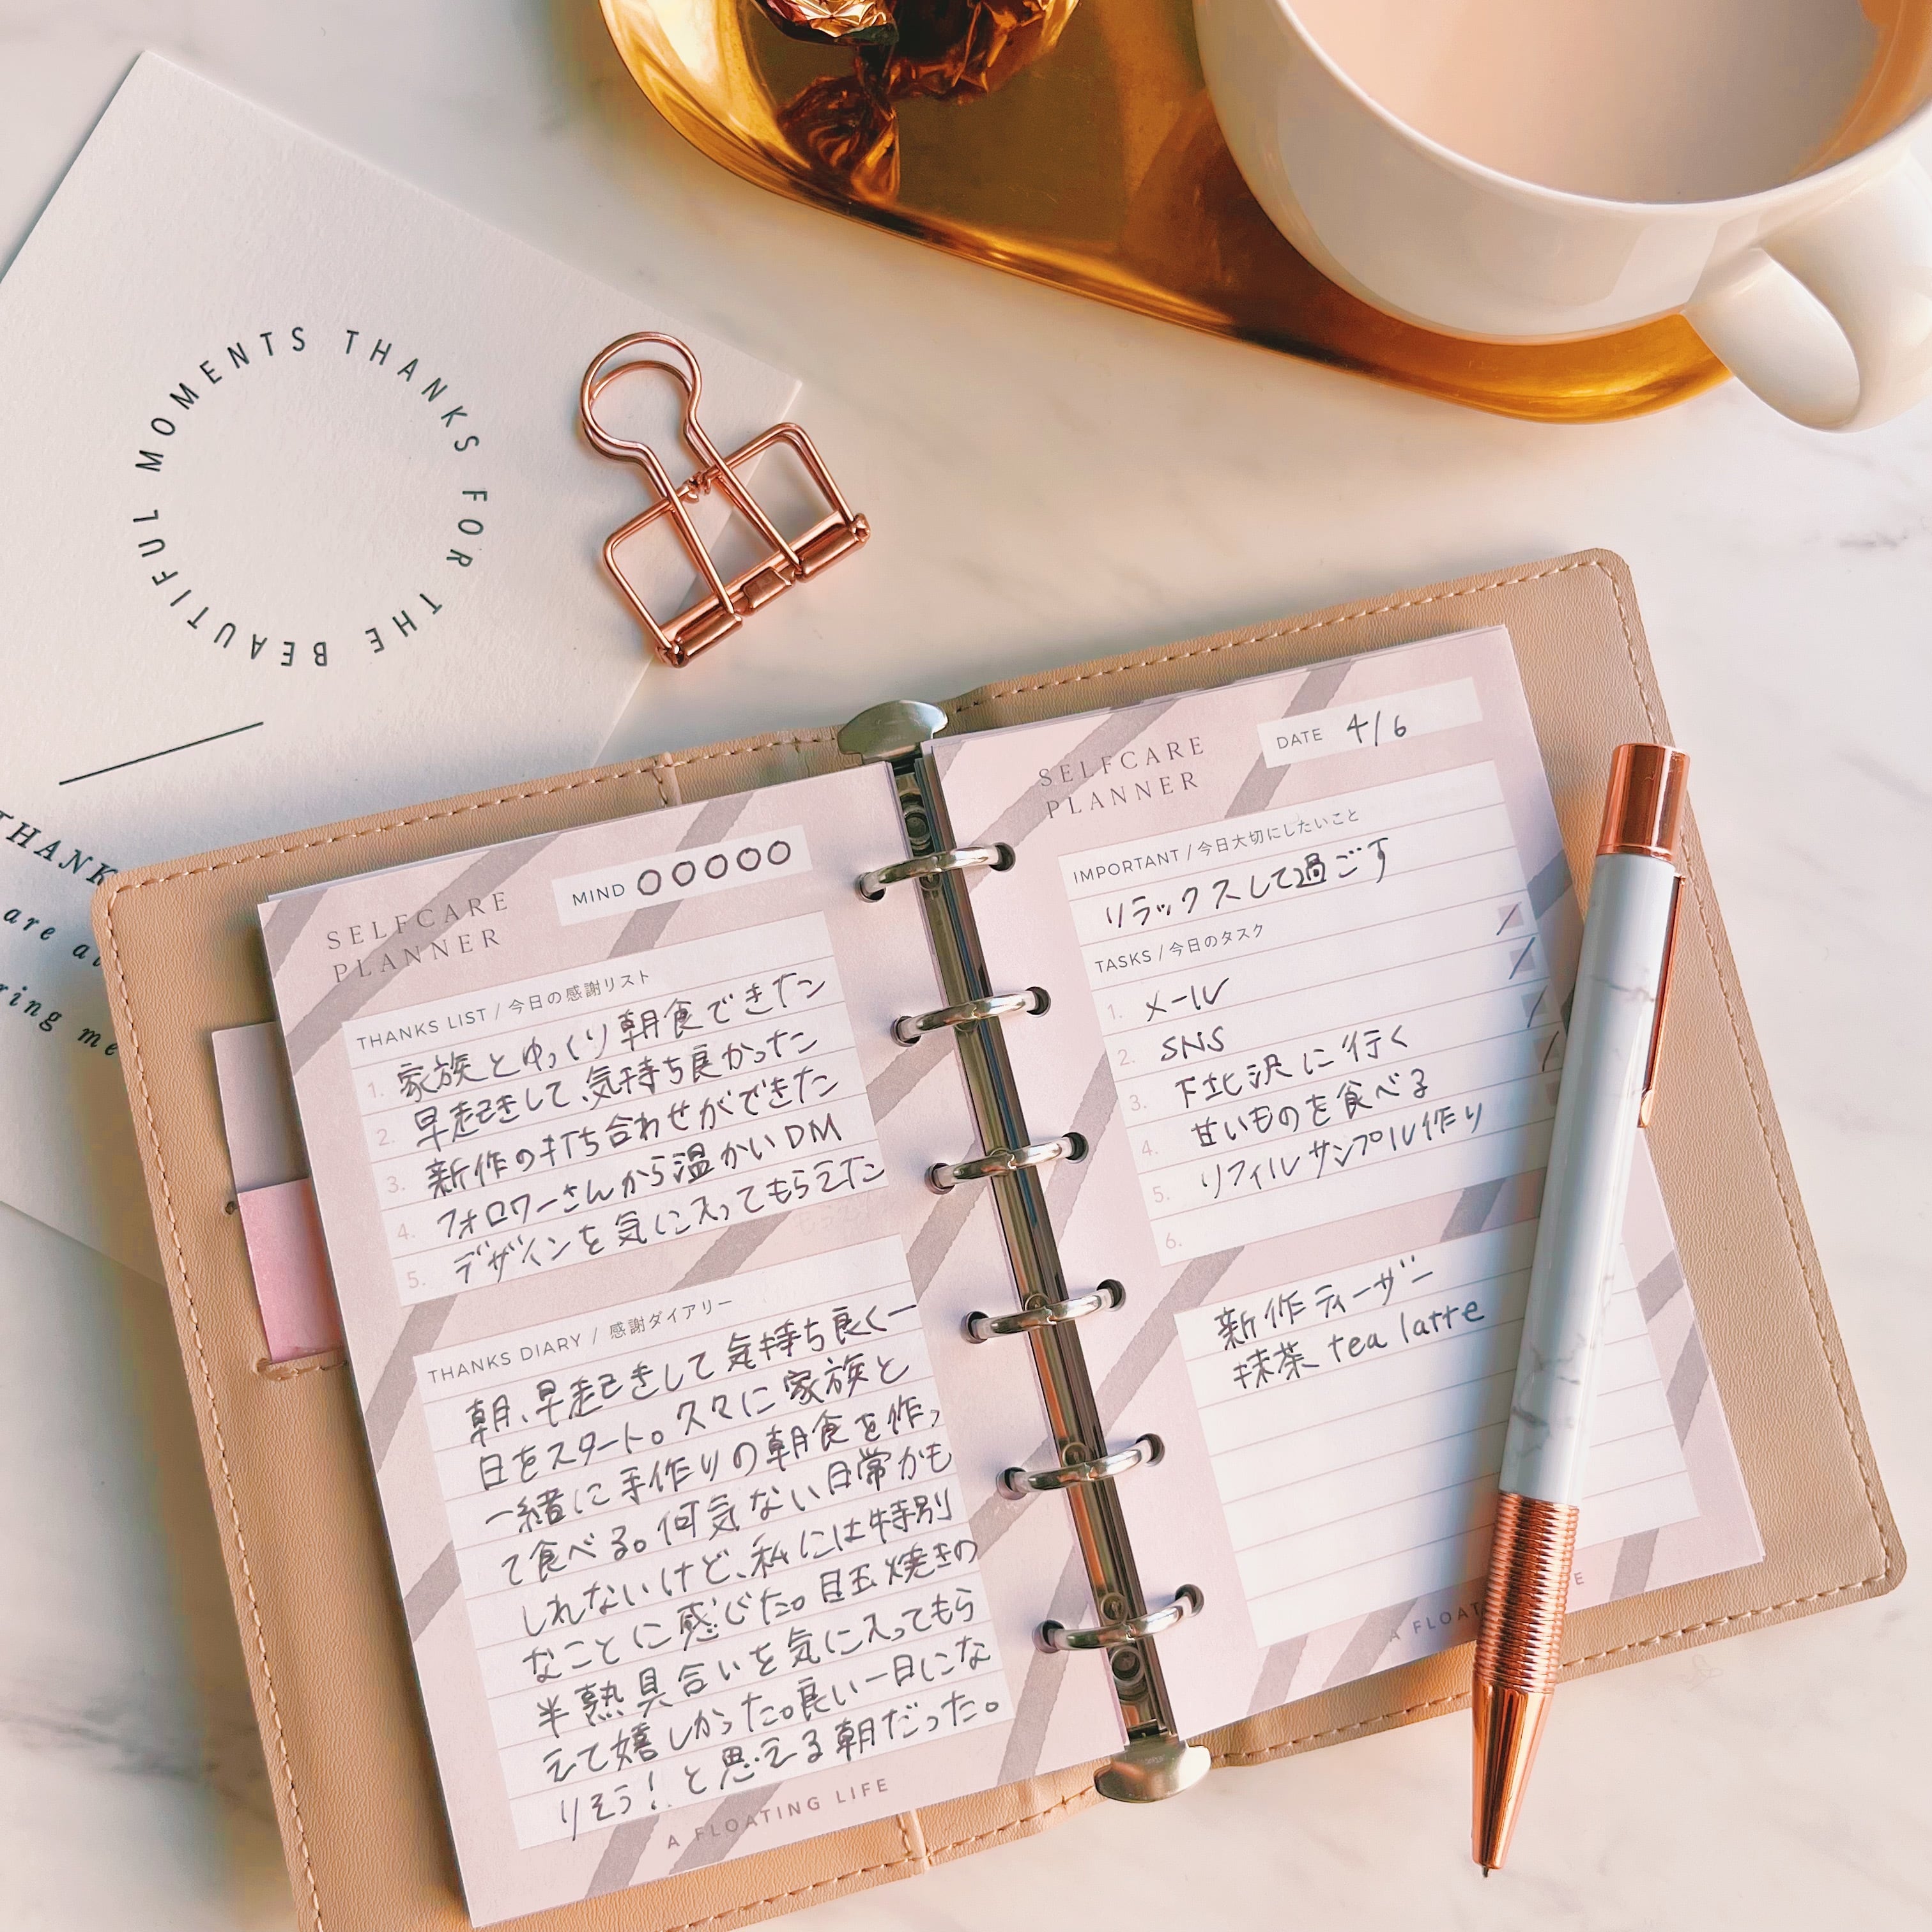 MOMENTS THANKS FOR THE BEAUTIFUL
THANK
are a
ring me
SELFCARE
PLANNER
MIND OOOOO
THANKS LIST / 今日の感謝リスト
1. 家族とゆっくり朝食できた
2. 早起きして、気持ち良かった
3. 新作の打ち合わせができた
4. フォロワーさんから温かいDM
5. デザインを気に入ってもらえた
THANKS DIARY / 感謝ダイアリー
朝、早起きして気持ち良く一
日をスタート。久々に家族と
一緒に手作りの朝食を作っ
て食べる。何気ない日常かも
しれないけど、私には特別
なことに感じた。目玉焼きの
半熟具合いを気に入ってもら
えて嬉しかった。良い一日にな
りそう！と思える朝だった。
A FLOATING LIFE
SELFCARE
PLANNER
DATE 4/6
IMPORTANT / 今日大切にしたいこと
リラックスして過ごす
TASKS / 今日のタスク
1. メール
2. SNS
3. 下北沢に行く
4. 甘いものを食べる
5. リフィルサンプル作り
6.
新作ティーザー
抹茶 tea latte
A FLOAT E